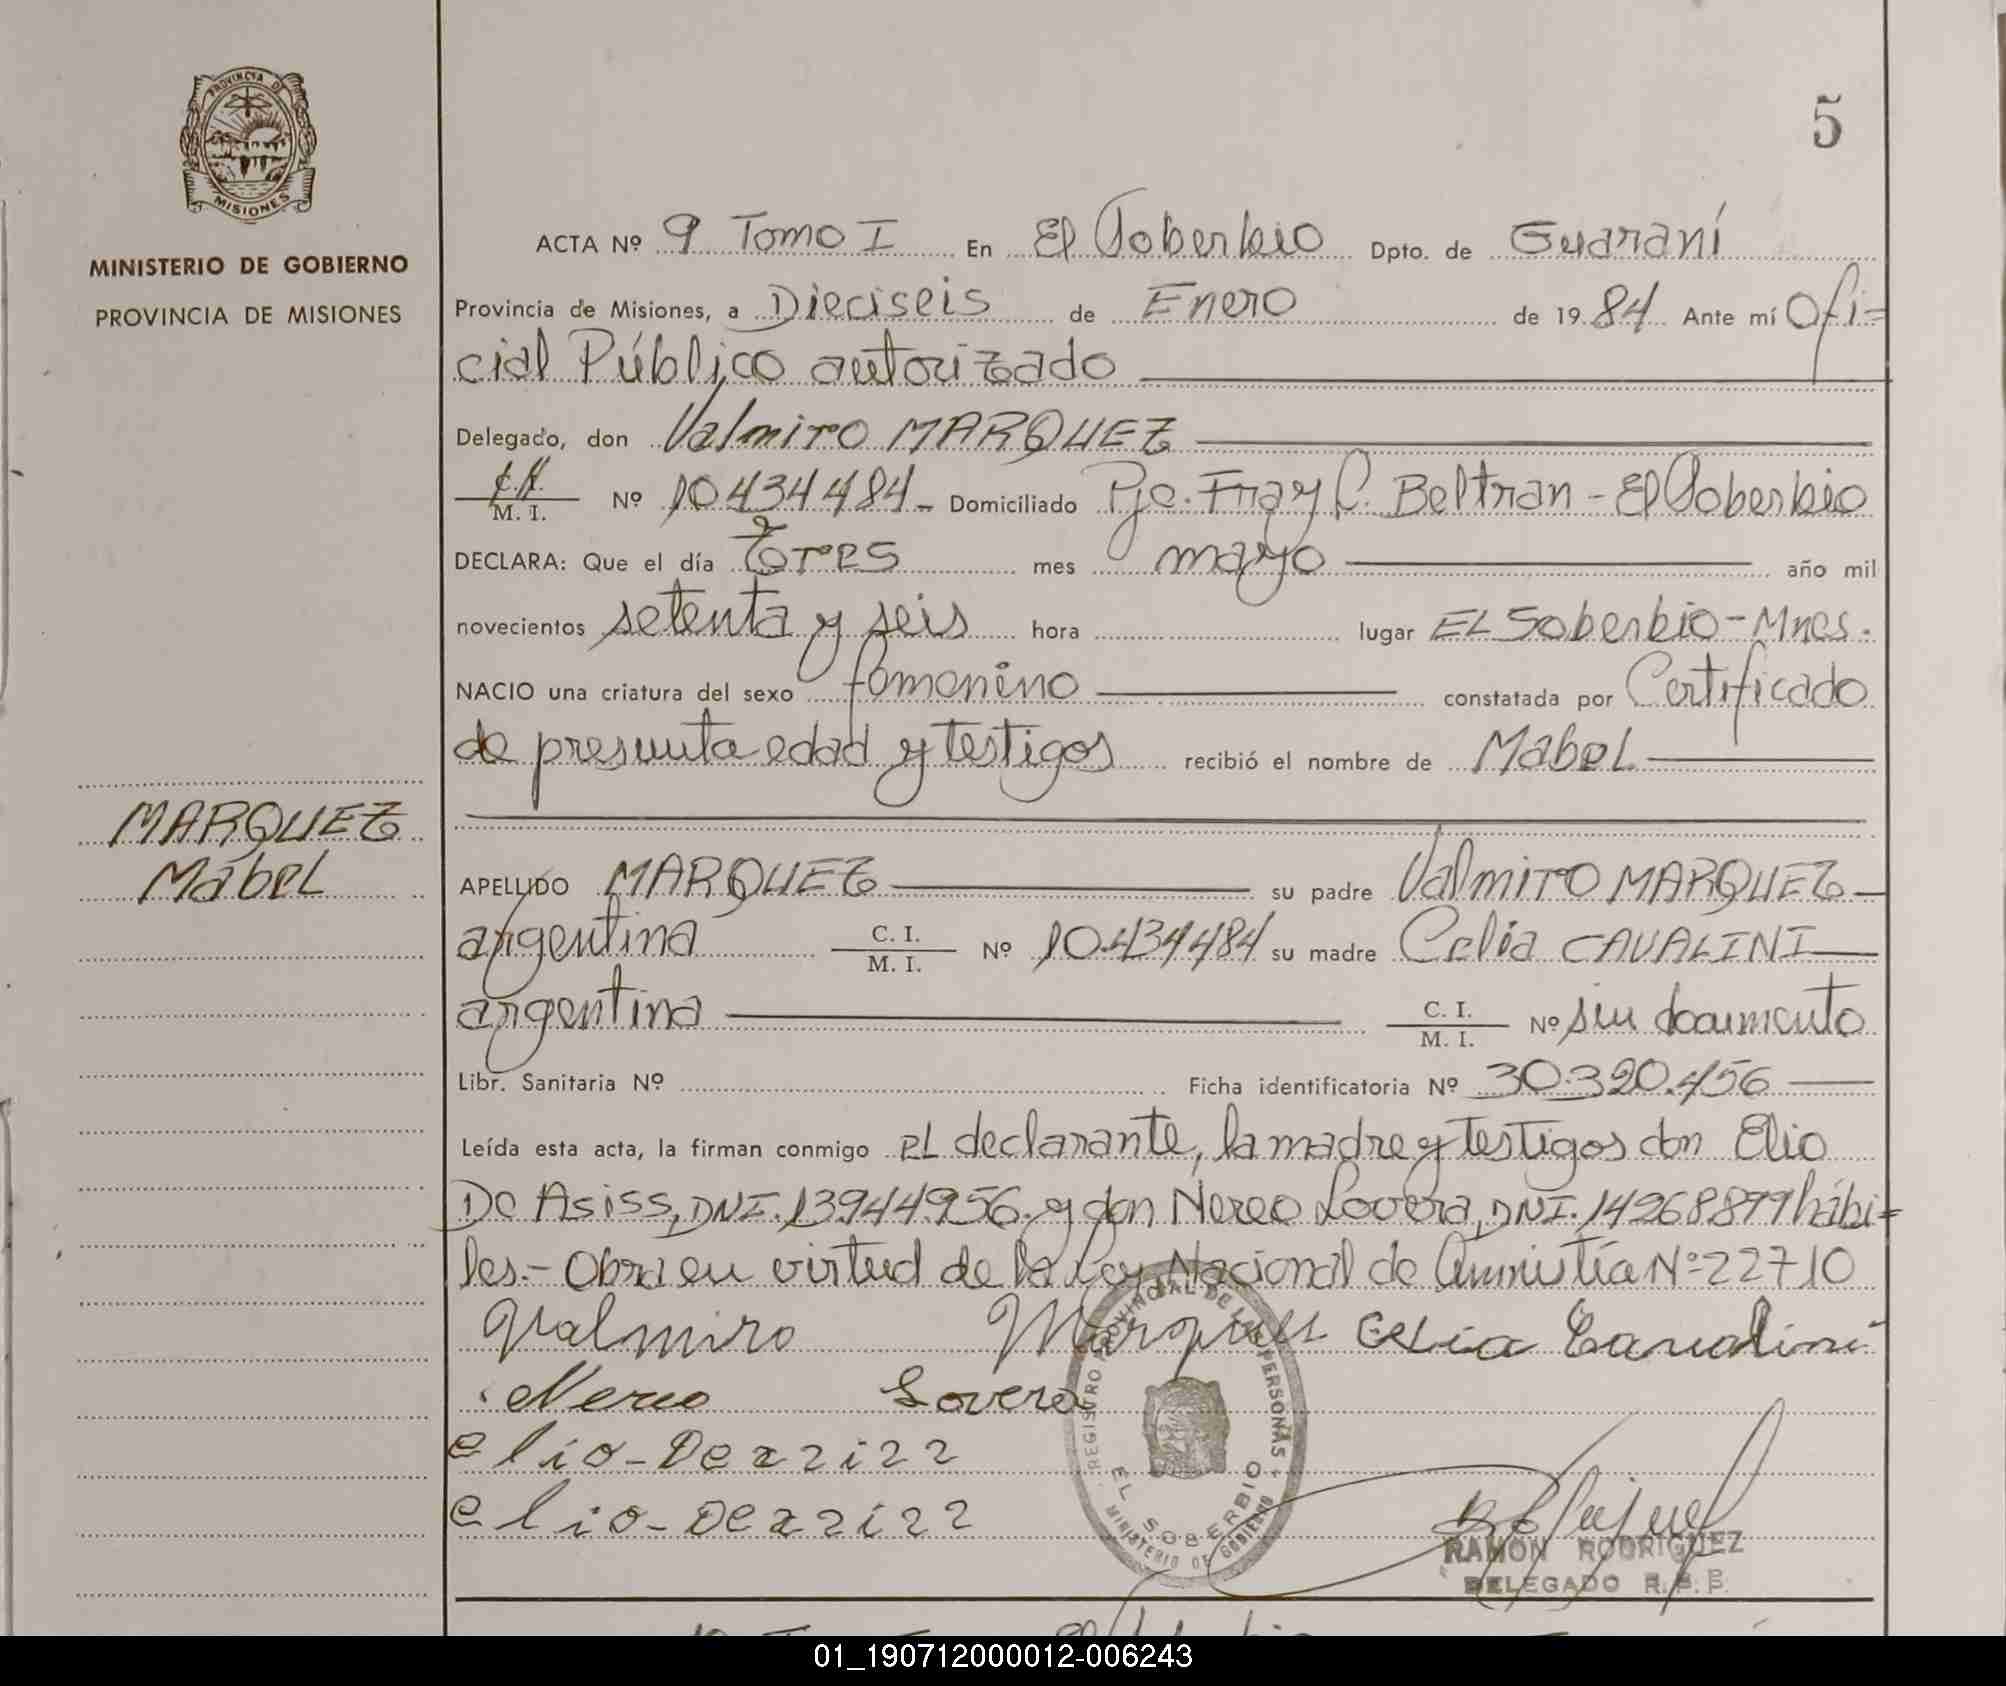 PROVINCIA DE
MISIONES
MINISTERIO DE GOBIERNO
PROVINCIA DE MISIONES
5
ACTA Nº 9 Tomo I En El Soberbio Dpto. de Guaraní
Provincia de Misiones, a Dieciseis de Enero de 1984 Ante mí Ofi=
cial Público autorizado
Delegado, don Valmiro MARQUEZ
C.I.
M. I. Nº 10434484- Domiciliado Pje. Fray L. Beltran - El Soberbio
DECLARA: Que el día tres mes mayo año mil
novecientos setenta y seis hora lugar EL Soberbio - Mnes.
NACIO una criatura del sexo femenino constatada por Certificado
de presunta edad y testigos recibió el nombre de Mabel
MARQUEZ
Mabel
APELLIDO MARQUEZ su padre Valmiro MARQUEZ
argentina C. I. M. I. Nº 10.434484 su madre Celia CAVALINI
argentina C. I. M. I. Nº sin documento
Libr. Sanitaria Nº Ficha identificatoria Nº 30.320.456
Leída esta acta, la firman conmigo el declarante, la madre y testigos don Elio
De Asiss, DNI. 13944956. y don Nereo Lovera, DNI. 14268899 hábi=
les.- Obra en virtud de la Ley Nacional de Amnistía Nº 22710
Valmiro Marques Celia Cavalini
Nereo Lovera
elio-Dezzizz
elio-Dezzizz
REGISTRO PROVINCIAL DE LAS PERSONAS
EL SOBERBIO
MINISTERIO DE GOBIERNO
RAMON RODRIGUEZ
DELEGADO R.P.P.
01_190712000012-006243